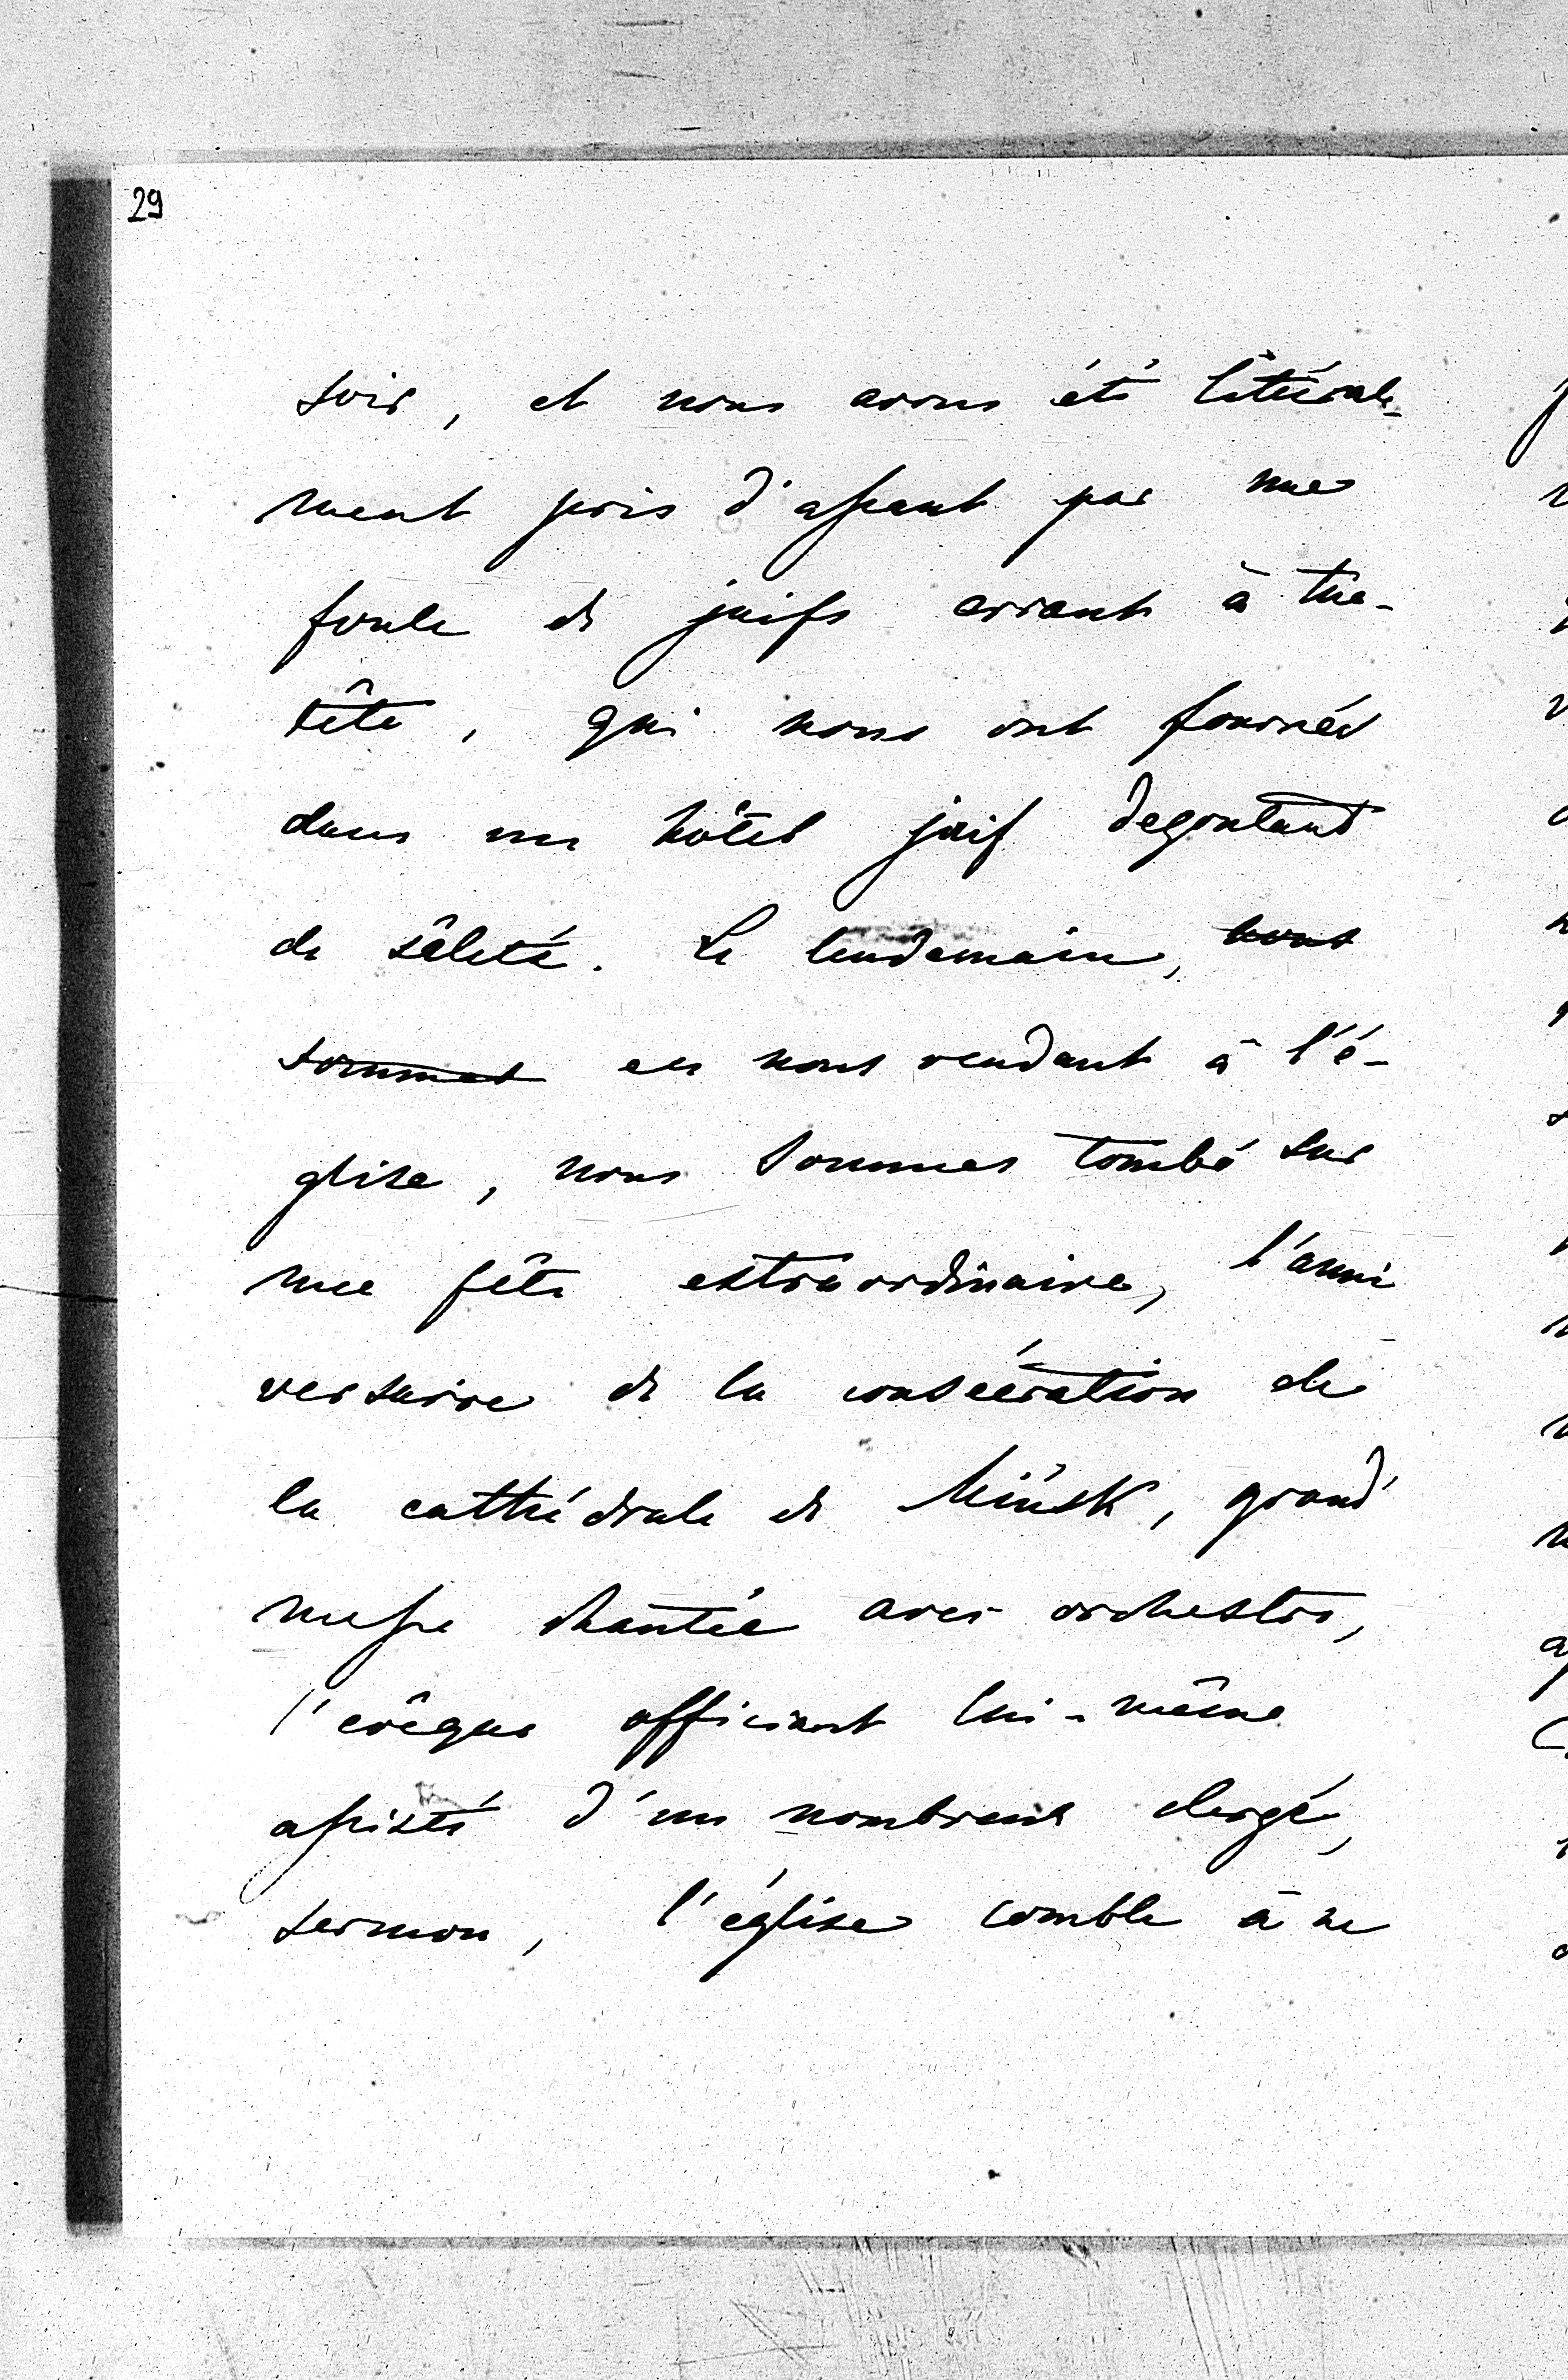 29
soir, et nous avons été littérale-
ment pris d'assaut par une
foule de juifs criant à tue-
tête, qui nous ont fourrés
dans un hôtel juif degoutant
de sâleté. Le lendemain, nous
sommes en nous rendant à l'é-
glise, nous sommes tombé sur
une fête extraordinaire, l'anni
versaire de la consécration de
la cathédrale de Minsk, grand'
messe chantée avec orchestre,
l'evêque officiant lui-même
assisté d'un nombreux clergé,
sermon, l'église comble à ne